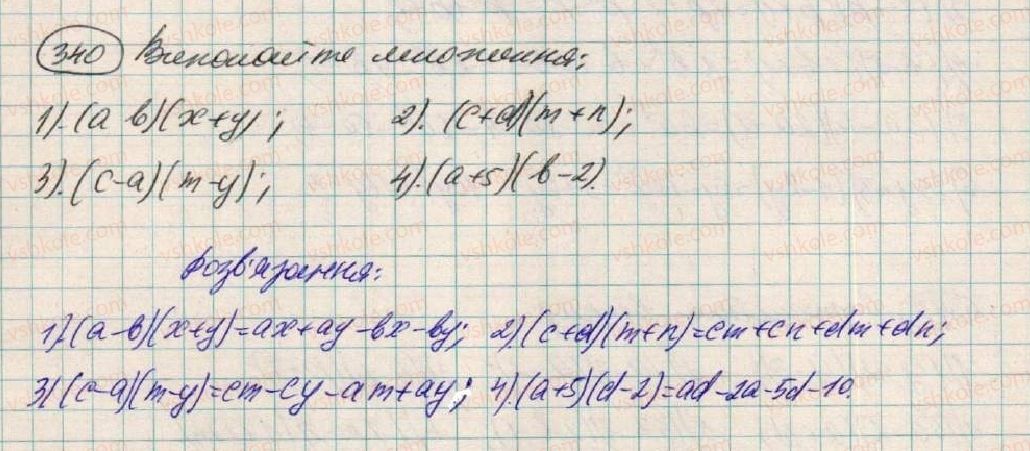 340 Виконайте множення:
1). (a в)(x+y); 2). (c+d)(m+n);
3). (c-a)(m-y); 4). (a+5)(в-2).
Розв'язання:
1) (a-в)(x+y)=ax+ay-вx-вy; 2) (c+d)(m+n)=cm+cn+dm+dn;
3) (c-a)(m-y)=cm-cy-am+ay; 4). (a+5)(d-2)=ad-2a-5d-10.